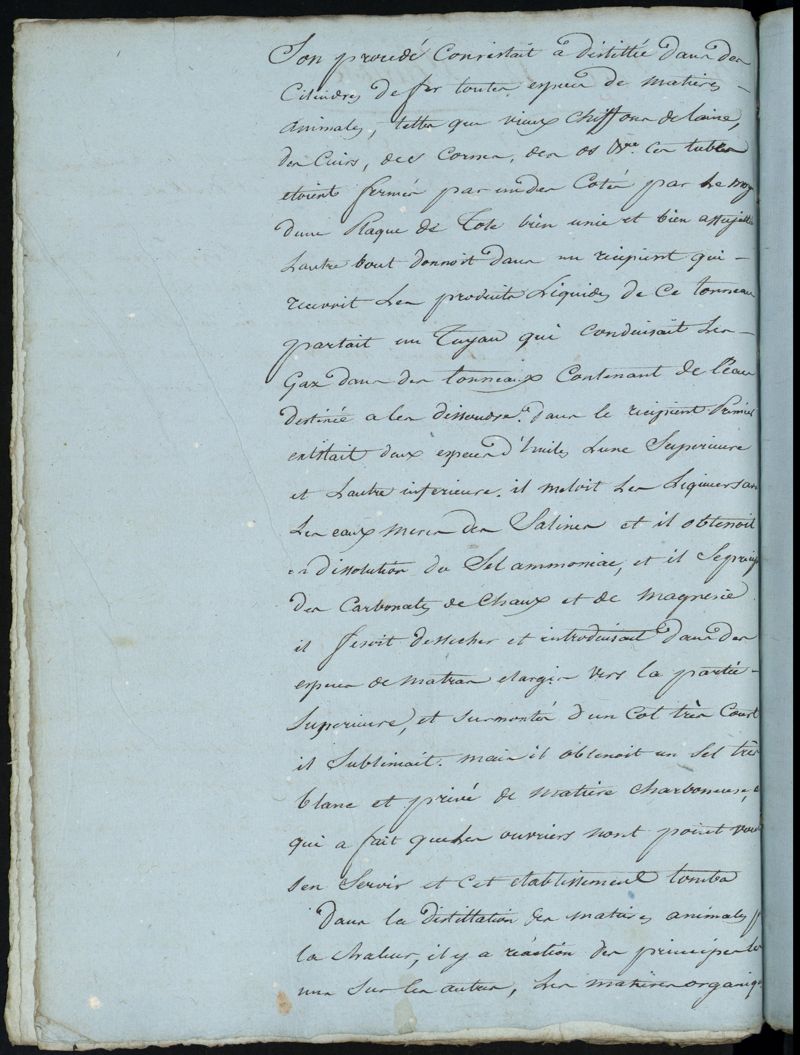 Son procedé Consistait à distillée dans des
Cilindres de fer toutes especes de matieres –
animales, telles que vieux chiffons de laine,
des Cuirs, des Cornes, des os &ca. Ces tubes
etoient fermés par un des Cotés par le moy
dune Plaque de Tole bien unie et bien assujetti
Lautre bout donnoit dans un recipient qui –
recevoit Les produits Liquides de Ce tonneau
partait un Tuyau qui Conduisait Les –
Gaz dans des tonneaux Contenant de l'eau
destinée a les dissoudre. dans le recipient Premier
existait deux especes d'huiles Lune Superieure
et Lautre inferieure. il meloit Les Liqueurs
Les eaux meres des Salines et il obtenoit
en dissolution du Sel ammoniac, et il Se
des Carbonates de Chaux et de magnesie
il fesoit dessecher et introduisait dans des
especes de matras elargis vers la partie –
Superieure, et Surmontés d'un Col très Court
il Sublimait. mais il obtenoit un Sel très
blanc et privé de matière charbonneuse,
qui a fait que Les ouvriers nont point voul
Sen Servir et Cet etablissement tomba
Dans la distillation des matières animales p
la chaleur, il y a réaction des principes les
uns Sur les autres, Les matières organiq